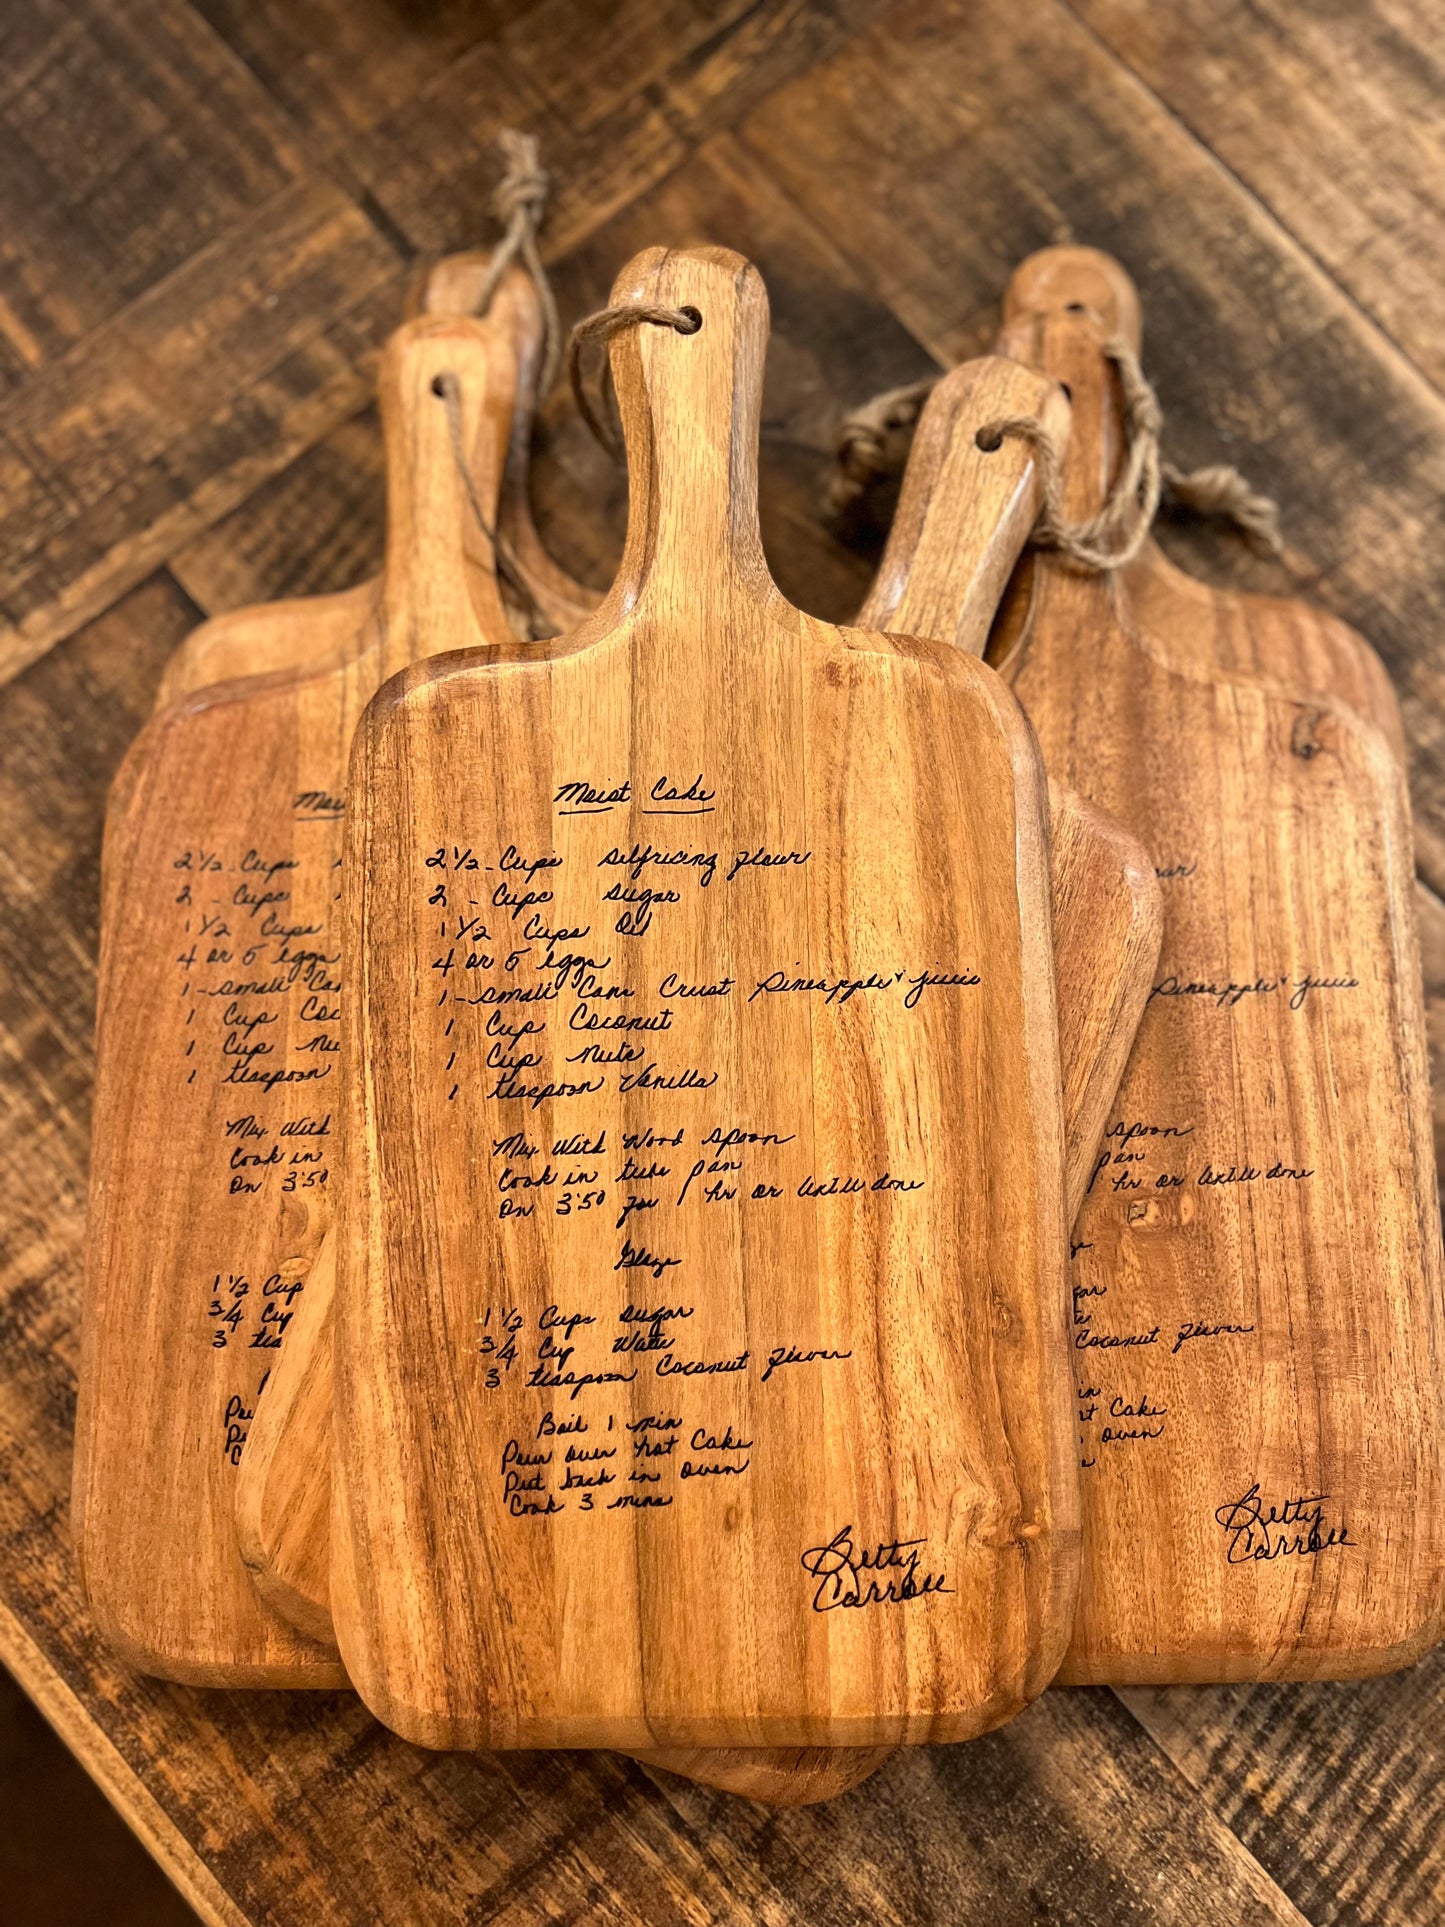 Moist Cake
2 1/2 - Cups selfricing flour
2 - Cups sugar
1 1/2 Cups Oil
4 or 5 eggs
1 - small Can Crust pineapple & juice
1 Cup Coconut
1 Cup nuts
1 teaspoon Vanilla
Mix With Wood spoon
Cook in tube pan
On 350 for 1 hr or until done
Glaze
1 1/2 Cups sugar
3/4 Cup Water
3 teaspoon Coconut flavor
Boil 1 min
Pour over hot Cake
Put back in oven
Cook 3 mins
Betty
Carroll
2 1/2 - Cups
2 - Cups
1 1/2 Cups
4 or 5 eggs
1 - small Can
1 Cup Coc
1 Cup nu
1 teaspoon
Mix With
Cook in
On 350
1 1/2 Cup
3/4 Cup
3 tea
pineapple & juice
spoon
pan
hr or until done
Coconut flavor
Cake
oven
Betty
Carroll